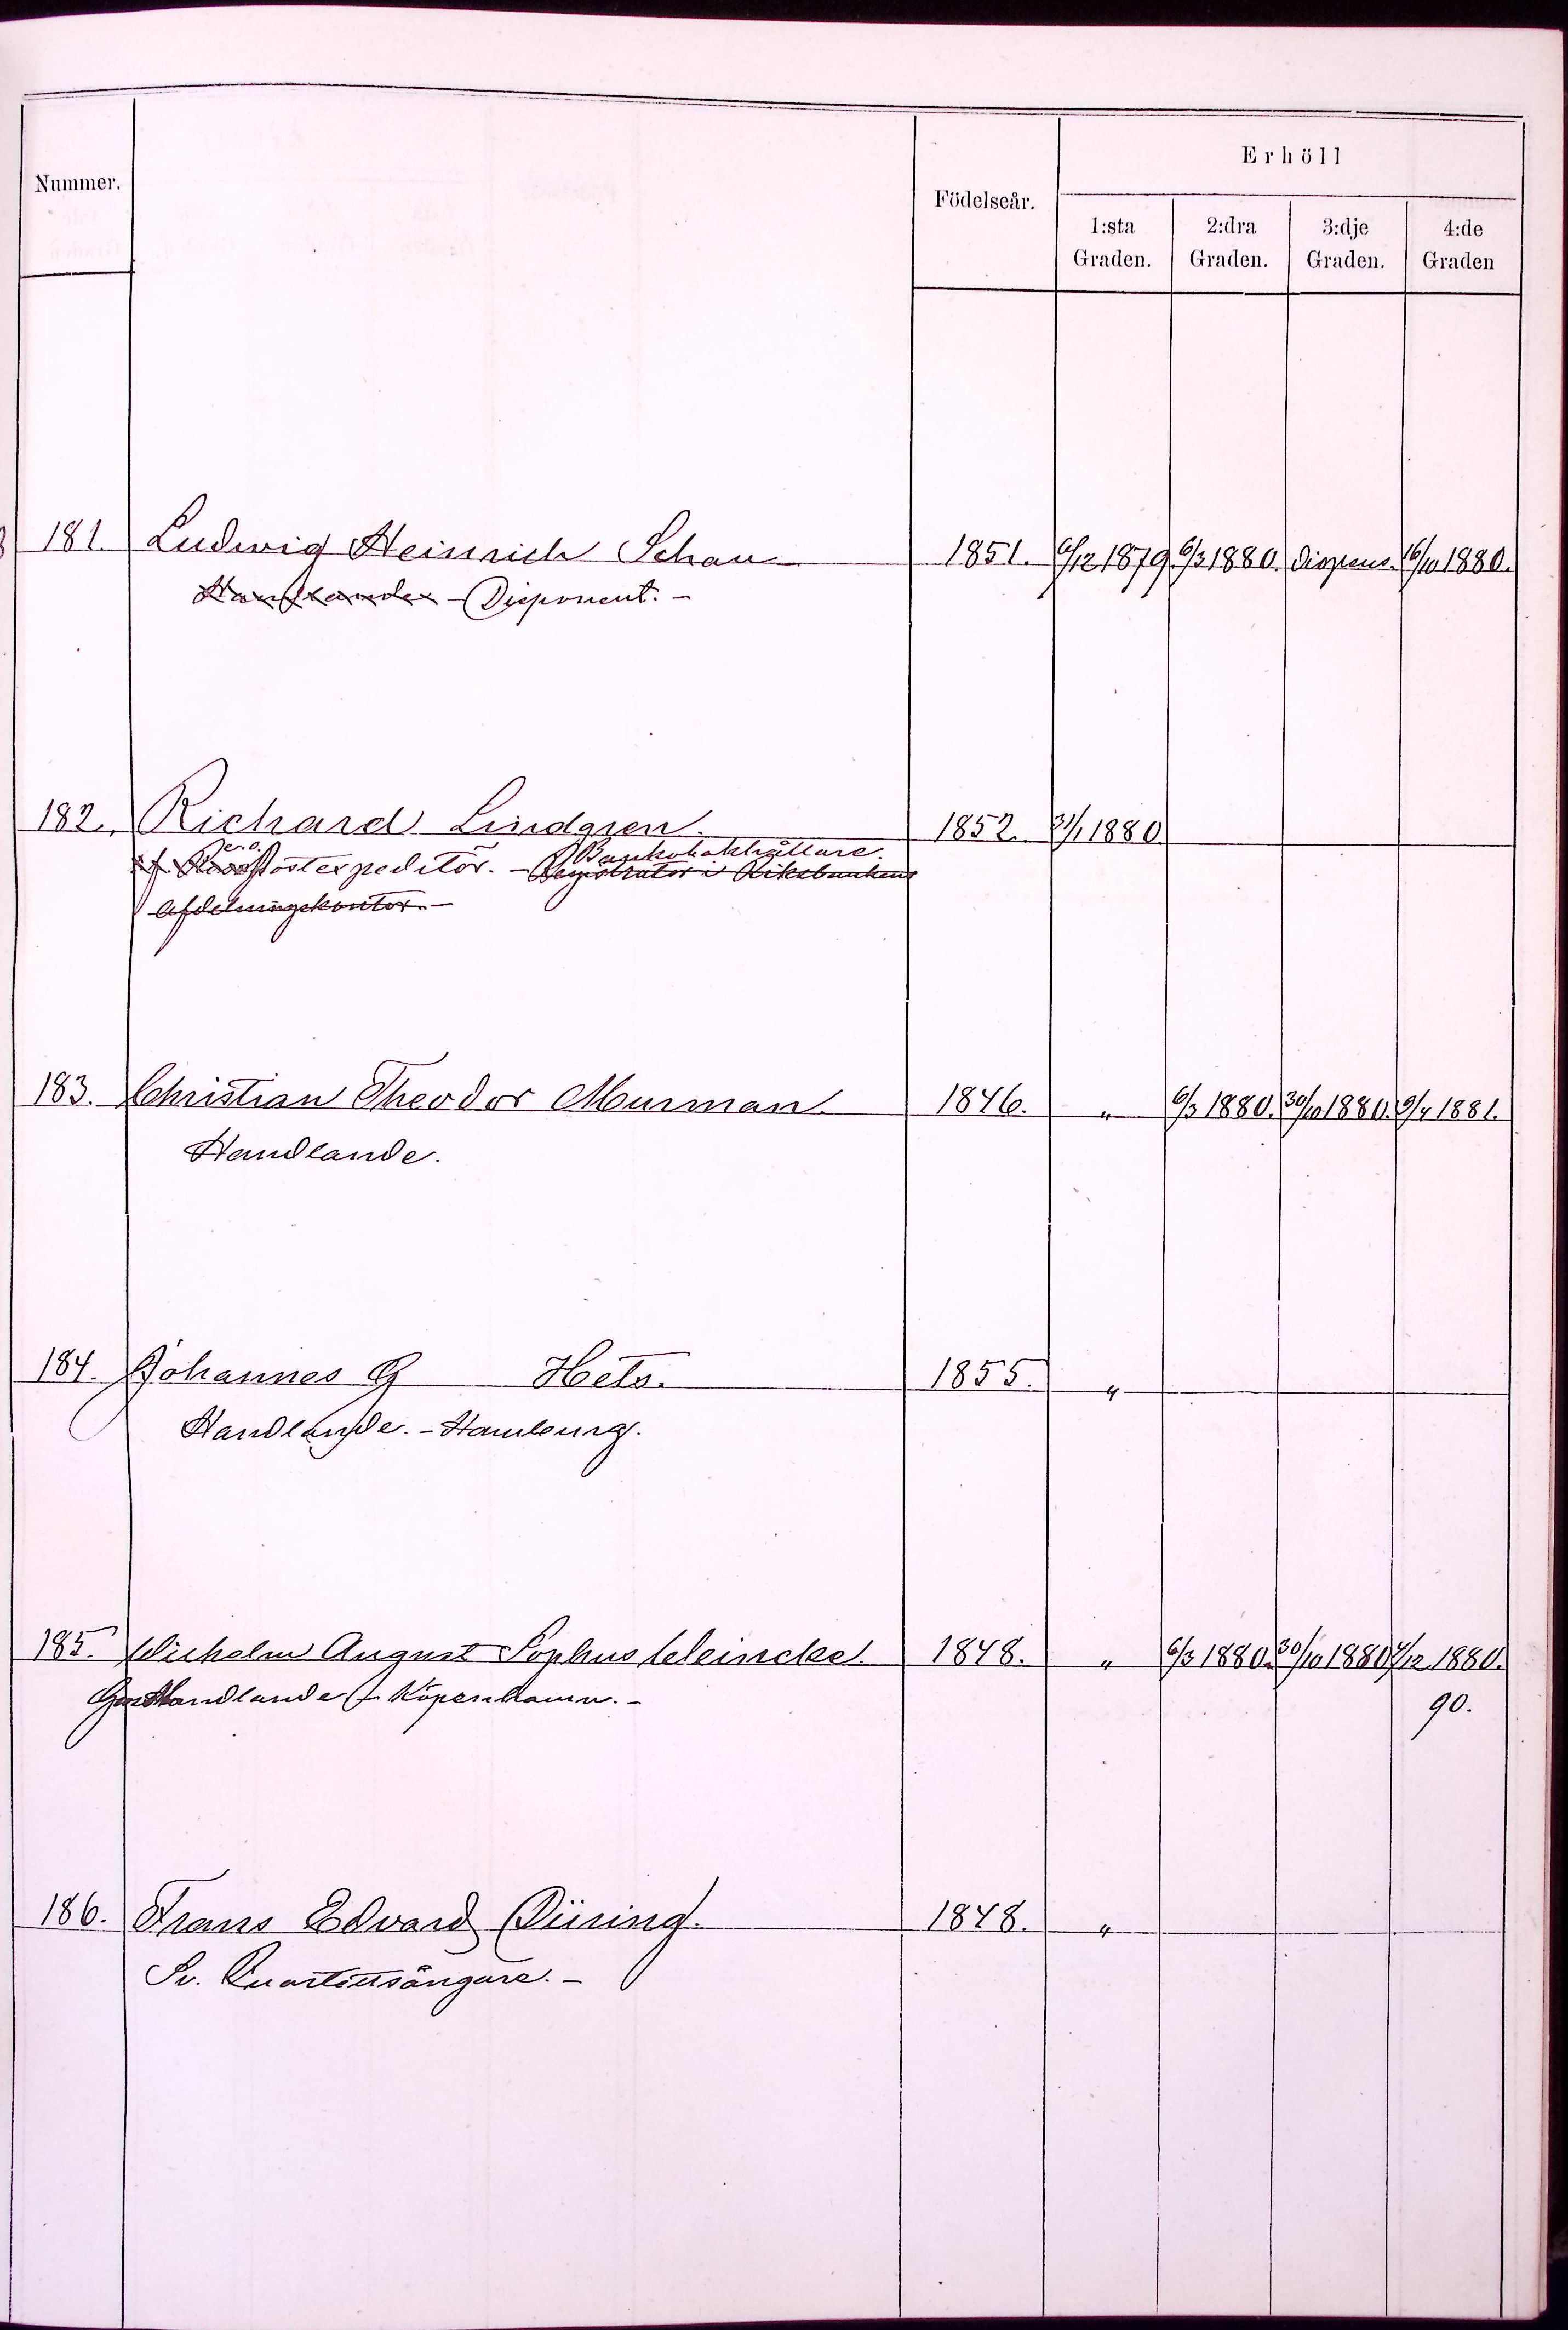 Nummer.
Födelseår.
Erhöll
1:sta Graden.
2:dra Graden.
3:dje Graden.
4:de Graden
181. Ludwig Heinrich Schau 1851. 6/12 1879. 6/3 1880. dispens. 16/10 1880.
Handlande - Disponent. -
182. Richard Lindgren. 1852. 31/1 1880
e.o. Bankobokhållare.
Postexpeditör. - Registrator i Riksbankens
Afdelningskontor. -
183. Christian Theodor Murman. 1846. " 6/3 1880. 30/10 1880. 9/4 1881.
Handlande.
184. Johannes G Hets. 1855. "
Handlande. - Hamburg.
185. Wilhelm August Sophus Meincke. 1848. " 6/3 1880. 30/10 1880 4/12 1880.
Handlande - Köpenhamn. - 90.
186. Frans Edvard Düring. 1848. "
Sv. Quartettsångare. -